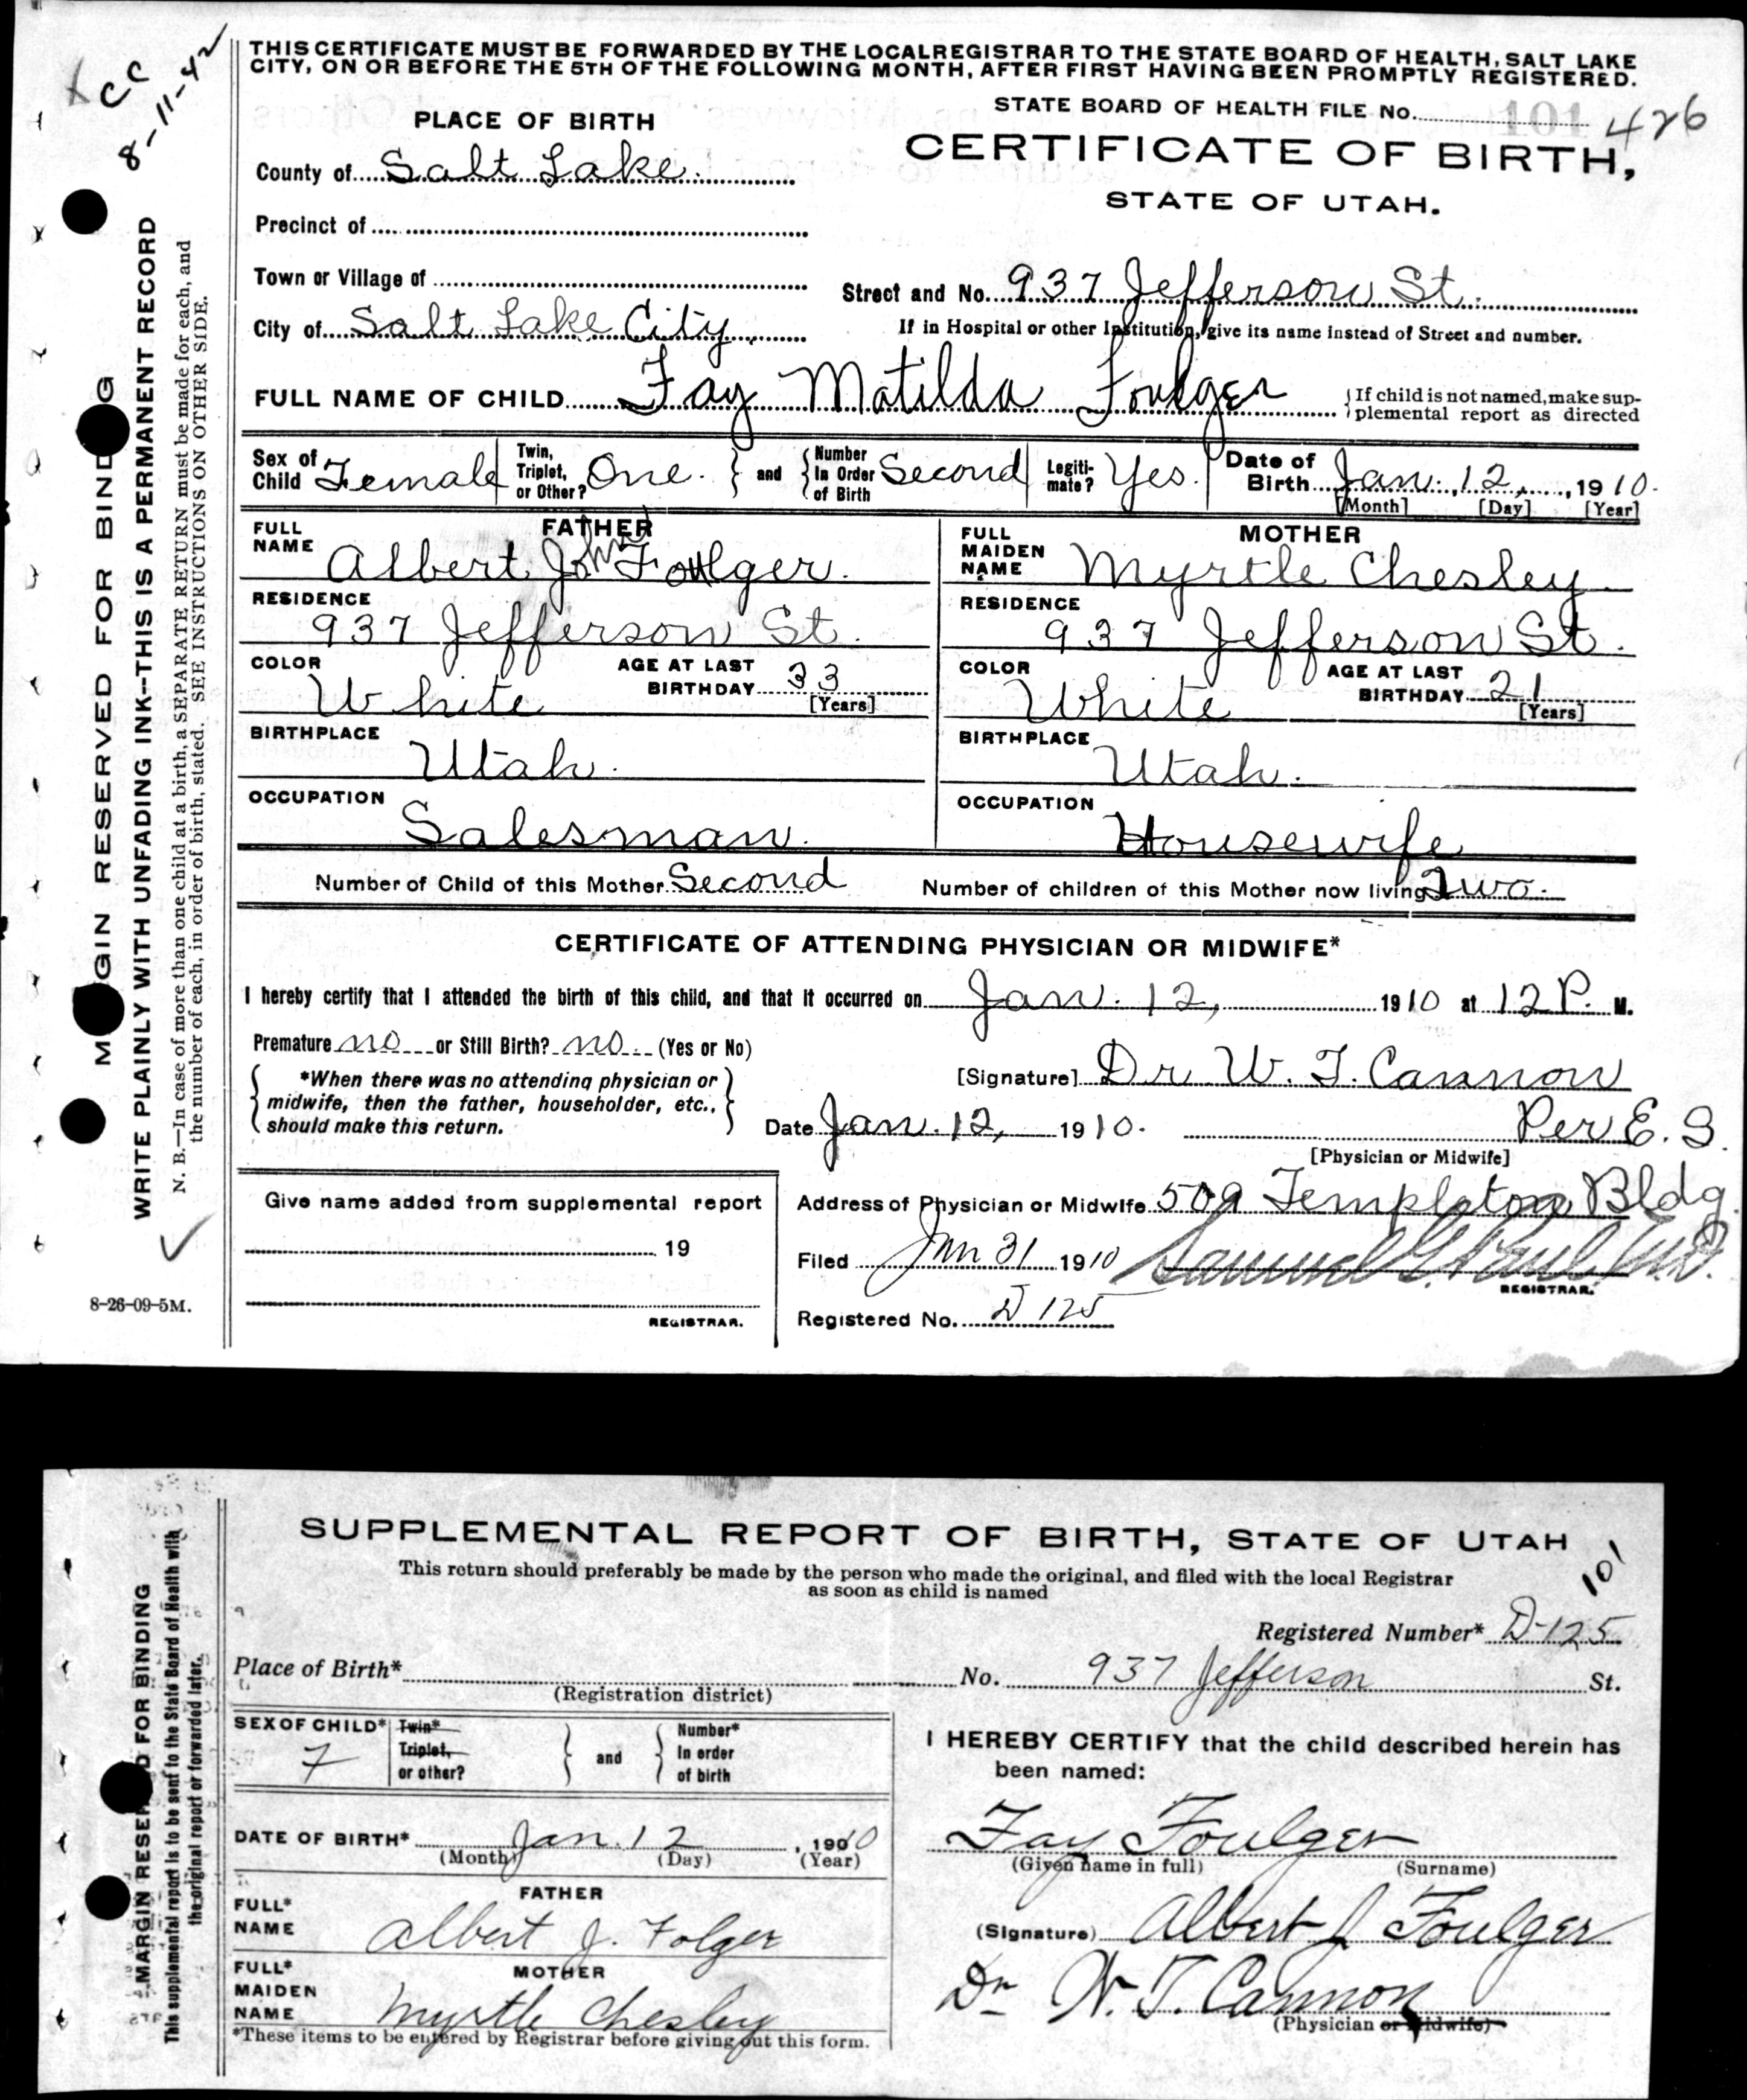 THIS CERTIFICATE MUST BE FORWARDED BY THE LOCAL REGISTRAR TO THE STATE BOARD OF HEALTH, SALT LAKE
CITY, ON OR BEFORE THE 5TH OF THE FOLLOWING MONTH, AFTER FIRST HAVING BEEN PROMPTLY REGISTERED.
CC
8-11-42
STATE BOARD OF HEALTH FILE No. 101 426
PLACE OF BIRTH
CERTIFICATE OF BIRTH,
STATE OF UTAH.
County of Salt Lake.
Precinct of
Town or Village of
Street and No. 937 Jefferson St.
City of Salt Lake City.
If in Hospital or other Institution, give its name instead of Street and number.
FULL NAME OF CHILD Fay Matilda Foulger
If child is not named, make sup-
plemental report as directed
Sex of Child Female
Twin, Triplet, or Other? One. and Number In Order of Birth Second
Legiti-mate? Yes.
Date of Birth Jan. 12, 1910.
[Month] [Day] [Year]
FATHER
FULL NAME Albert John Foulger.
RESIDENCE
937 Jefferson St.
COLOR White
AGE AT LAST BIRTHDAY 33
[Years]
BIRTHPLACE
Utah.
OCCUPATION
Salesman.
MOTHER
FULL MAIDEN NAME Myrtle Chesley
RESIDENCE
937 Jefferson St.
COLOR White
AGE AT LAST BIRTHDAY 21
[Years]
BIRTHPLACE
Utah.
OCCUPATION
Housewife
Number of Child of this Mother Second
Number of children of this Mother now living Two.
CERTIFICATE OF ATTENDING PHYSICIAN OR MIDWIFE*
I hereby certify that I attended the birth of this child, and that it occurred on Jan. 12, 1910 at 12 P. M.
Premature no or Still Birth? no (Yes or No)
*When there was no attending physician or
midwife, then the father, householder, etc.,
should make this return.
[Signature] Dr. W. T. Cannon
Date Jan. 12, 1910. Per E. S.
[Physician or Midwife]
Give name added from supplemental report
19
REGISTRAR.
Address of Physician or Midwife 509 Templeton Bldg
Filed Jan 31 1910 Samuel G. Paul M.D.
REGISTRAR.
Registered No. D 125
MARGIN RESERVED FOR BINDING
WRITE PLAINLY WITH UNFADING INK--THIS IS A PERMANENT RECORD
N. B.—In case of more than one child at a birth, a SEPARATE RETURN must be made for each, and
the number of each, in order of birth, stated. SEE INSTRUCTIONS ON OTHER SIDE.
8-26-09-5M.
SUPPLEMENTAL REPORT OF BIRTH, STATE OF UTAH
This return should preferably be made by the person who made the original, and filed with the local Registrar
as soon as child is named
101
Registered Number* D-125
Place of Birth* No. 937 Jefferson St.
(Registration district)
SEX OF CHILD* F
Twin* Triplet, or other? and Number* In order of birth
DATE OF BIRTH* Jan. 12, 1910
(Month) (Day) (Year)
FATHER
FULL* NAME Albert J. Folger
MOTHER
FULL* MAIDEN NAME Myrtle Chesley
*These items to be entered by Registrar before giving out this form.
I HEREBY CERTIFY that the child described herein has
been named:
Fay Foulger
(Given name in full) (Surname)
(Signature) Albert J Foulger
Dr W. T. Cannon
(Physician or Midwife)
MARGIN RESERVED FOR BINDING
This supplemental report is to be sent to the State Board of Health with
the original report or forwarded later.